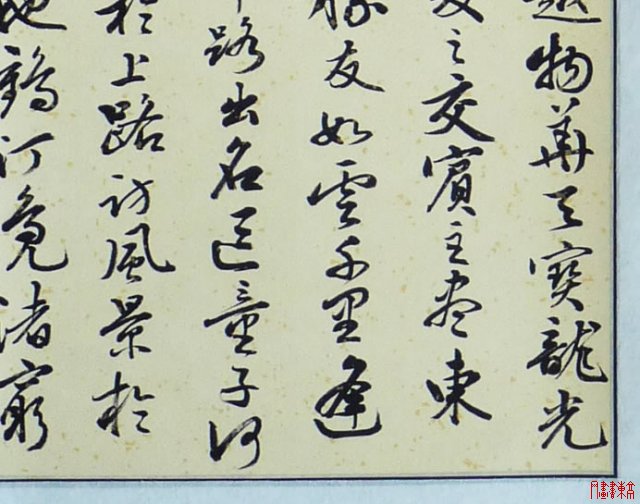 越物華天寶龍光
夏之交賓主盡東
勝友如雲千里逢
路出名區童子何
於上路訪風景於
地鶴汀鳧渚窮